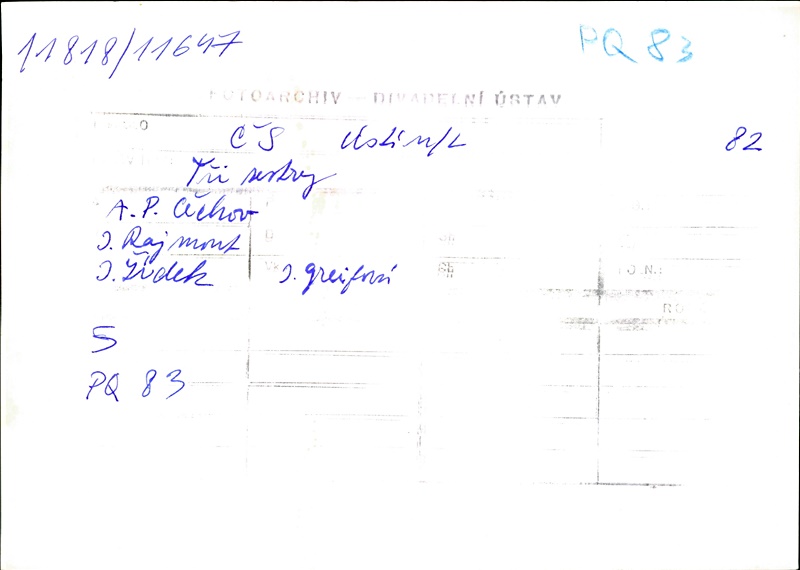 11818/11647
PQ 83
FOTOARCHIV – DIVADELNÍ ÚSTAV
ČS Ústí n/L 82
Tři sestry
A. P. Čechov
J. Rajmont
J. Žídek J. Greifová
5
PQ 83